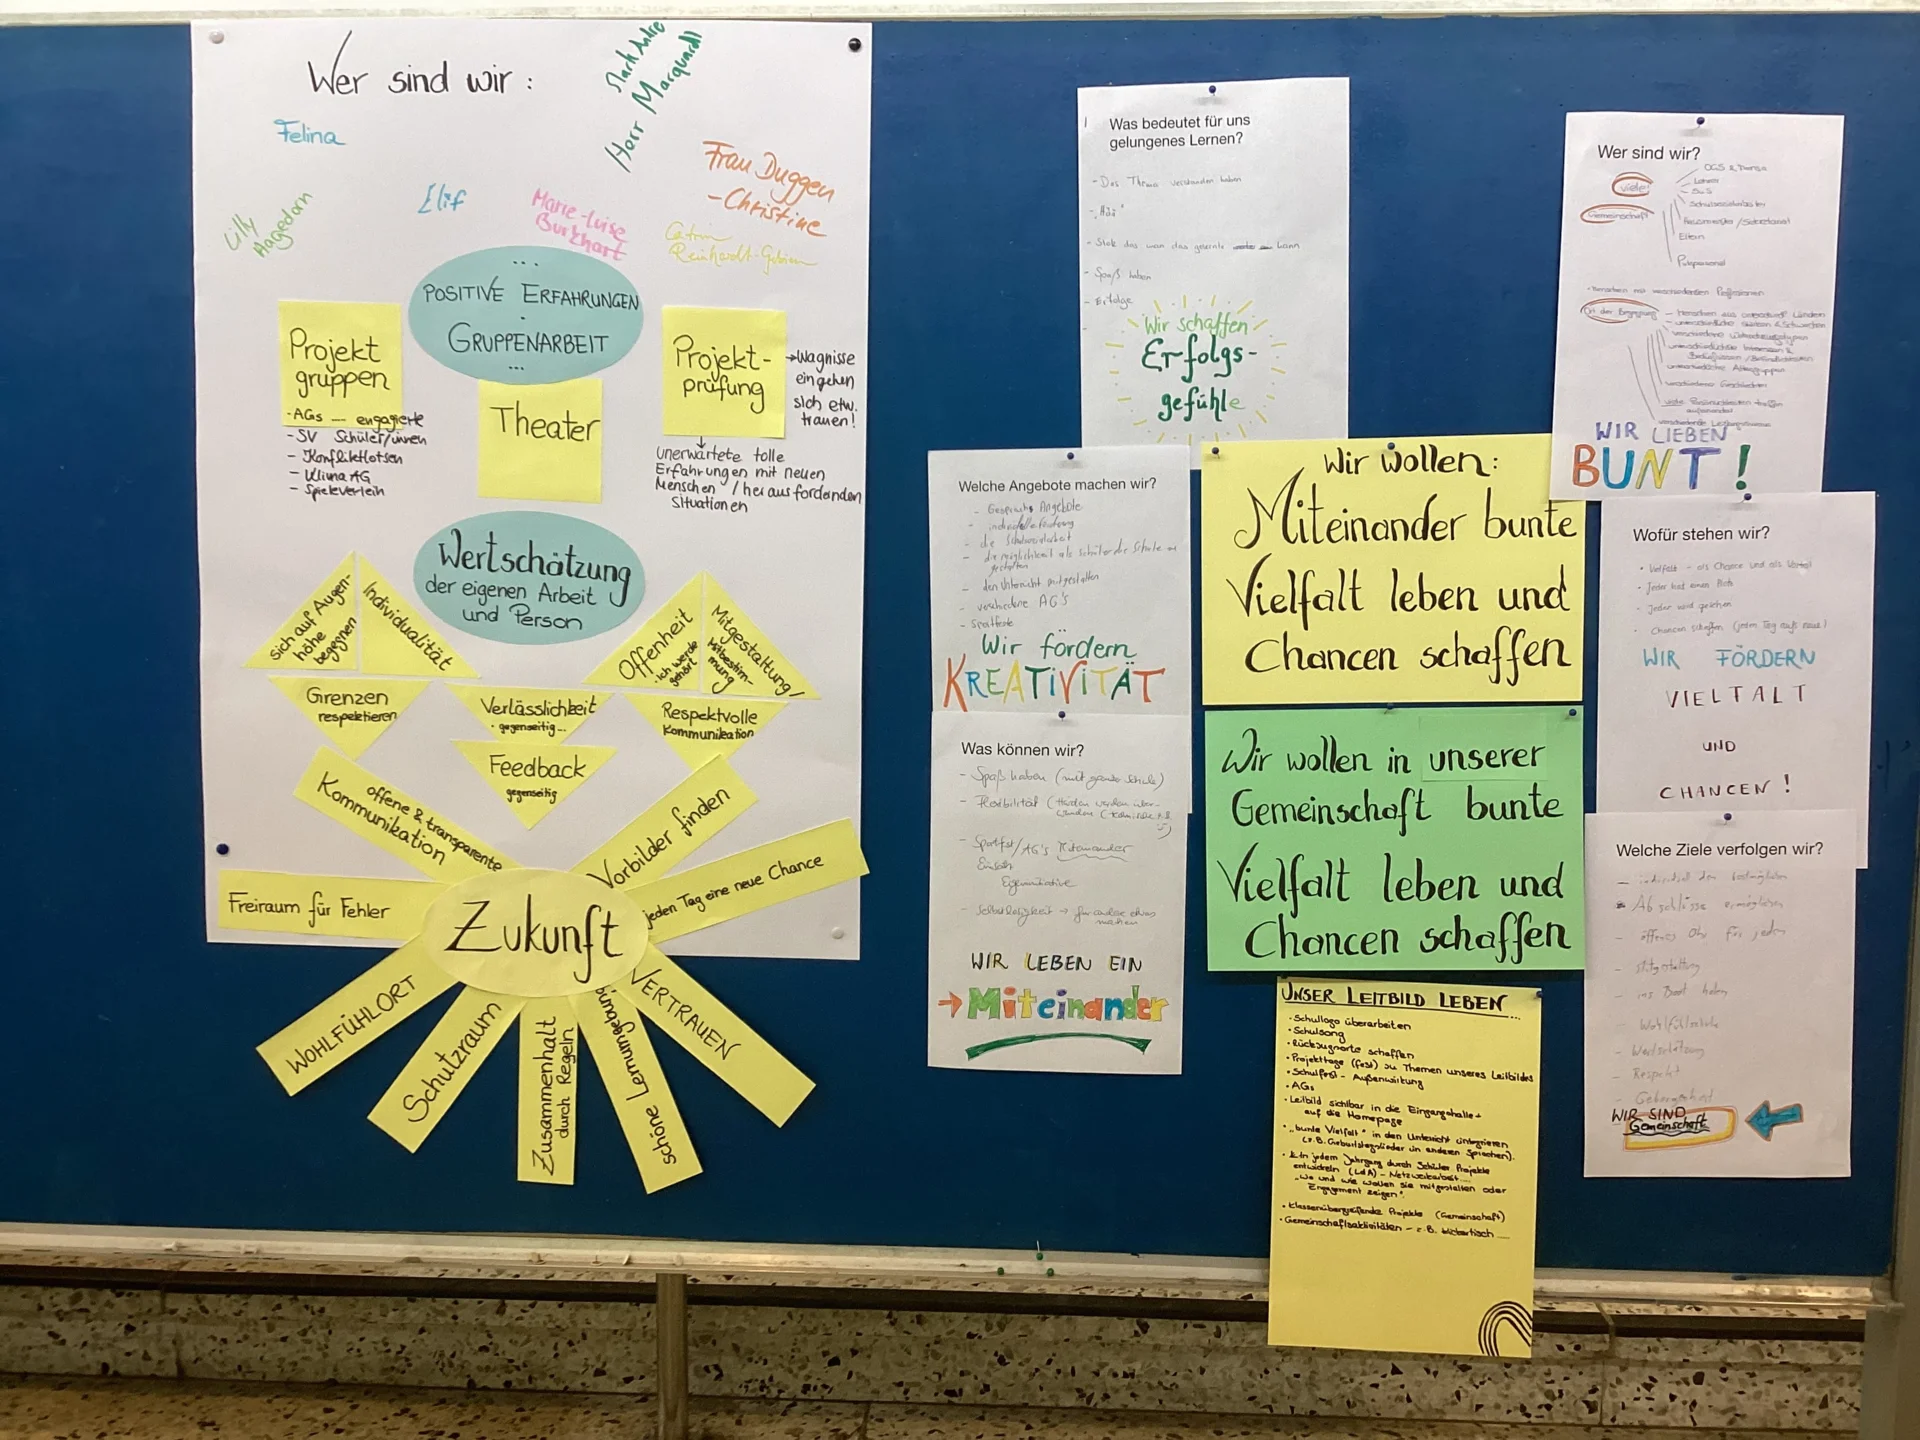 Wer sind wir :
Felina
Herr Marquardt
Frau Duggen
-Christine
Lilly
Hagedorn
Elif
Marie-Luise
Burkhart
Catrin
...
POSITIVE ERFAHRUNGEN
-
GRUPPENARBEIT
...
Projekt
gruppen
-AGs --- engagierte
- SV Schüler/innen
- Konfliktlotsen
- Klima AG
- Spieleverleih
Theater
Projekt-
prüfung
→Wagnisse
eingehen
sich etw.
trauen!
↓
unerwartete tolle
Erfahrungen mit neuen
Menschen / herausfordernden
Situationen
Wertschätzung
der eigenen Arbeit
und Person
sich auf Augen-
höhe
begegnen
Individualität
Offenheit
· ich werde
gehört
Mitgestaltung/
Mitbestim-
mung
Grenzen
respektieren
Verlässlichkeit
· gegenseitig...
Respektvolle
Kommunikation
Feedback
gegenseitig
offene & transparente
Kommunikation
Vorbilder finden
Freiraum für Fehler
jeden Tag eine neue Chance
Zukunft
WOHLFÜHLORT
Schutzraum
Zusammenhalt
durch Regeln
schöne Lernumgebung
VERTRAUEN
Was bedeutet für uns
gelungenes Lernen?
- Das Thema verstanden haben
- Stolz das man das gelernte kann
- Spaß haben
- Erfolge
-
Wir schaffen
Erfolgs-
gefühle
Welche Angebote machen wir?
- Gesprächs Angebote
- individuelle Förderung
- die Schulsozialarbeit
- die möglichkeit als Schüler die Schule zu
gestalten
- den Unterricht mitgestalten
- verschiedene AG's
- Sportfeste
Wir fördern
KREATIVITÄT
Was können wir?
- Spaß haben (mit ganze Schule)
- Flexibilität (Hürden werden über-
wunden
- Sportfest/AG's Miteinander
Eigeninitiative
- Selbstlosigkeit → für andere etwas
machen
WIR LEBEN EIN
→ Miteinander
Wir wollen:
Miteinander bunte
Vielfalt leben und
Chancen schaffen
Wir wollen in unserer
Gemeinschaft bunte
Vielfalt leben und
Chancen schaffen
UNSER LEITBILD LEBEN ...
· Schullogo überarbeiten
· Schulsong
· Rückzugsorte schaffen
· Projekttage (fest) zu Themen unseres Leitbildes
· Schulfest - Außenwirkung
· AGs
· Leitbild sichtbar in die Eingangshalle +
auf die Homepage
· „bunte Vielfalt" in den Unterricht integrieren
(z.B. Geburtstagslieder in anderen Sprachen).
· In jedem Jahrgang durch Schüler Projekte
entwickeln (LdA) - Netzwerkarbeit...
„Wo und wie wollen sie mitgestalten oder
Engagement zeigen".
· Klassenübergreifende Projekte (Gemeinschaft)
· Gemeinschaftsaktivitäten - z.B.
Wer sind wir?
viele
OGS & Mensa
Lehrer
SuS
Schulsozialarbeiter
Gemeinschaft
Hausmeister / Sekretariat
Eltern
Putzpersonal
· Menschen mit verschiedenen Professionen
Ort der Begegnung
- Menschen aus Ländern
- unterschiedliche Stärken & Schwächen
unterschiedliche Altersgruppen
verschiedene Geschlechter
WIR LIEBEN
BUNT !
Wofür stehen wir?
· Vielfalt - als Chance und als Vorteil
· Jeder hat einen Platz
· Jeder wird gesehen
· Chancen schaffen (jeden Tag aufs neue)
WIR FÖRDERN
VIELTALT
UND
CHANCEN !
Welche Ziele verfolgen wir?
- Abschlüsse ermöglichen
- offenes Ohr für jeden
- Mitgestaltung
- ins Boot holen
- Wohlfühlschule
- Wertschätzung
- Respekt
- Geborgenheit
WIR SIND
Gemeinschaft